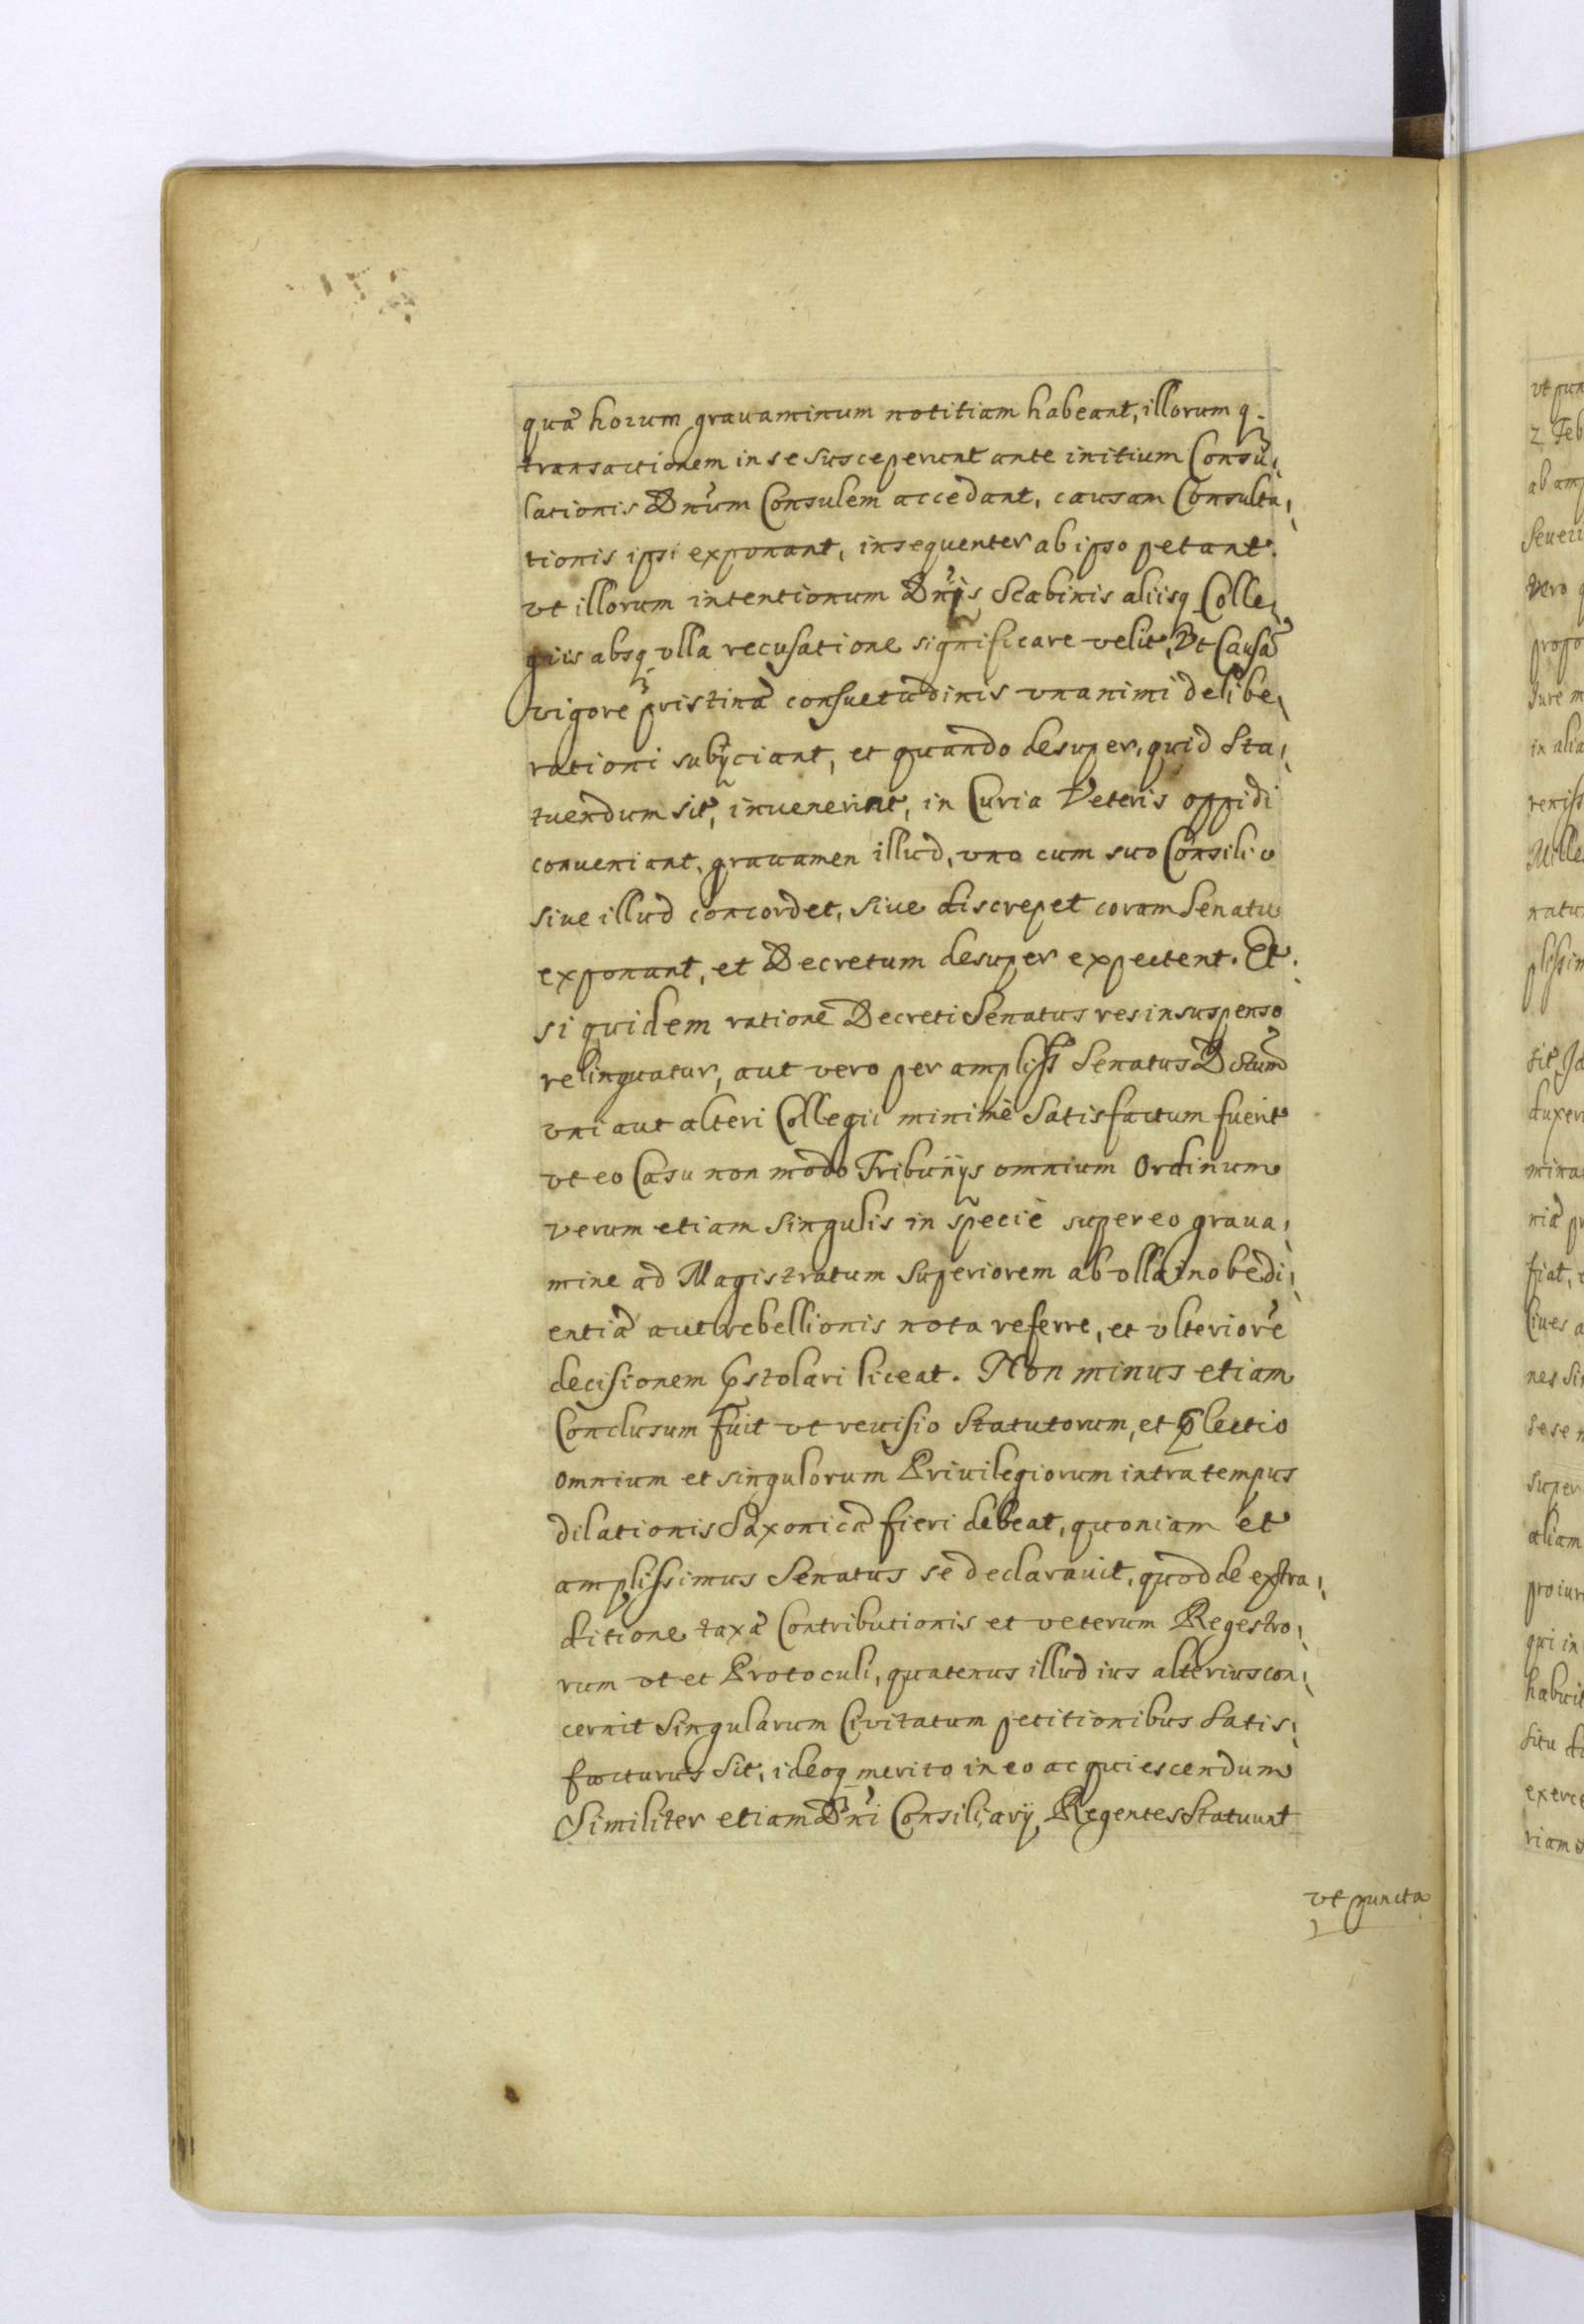 quæ horum grauaminum notitiam habeant, illorum q.
transactionem in se susceperunt ante initium Consu,
lationis Dn̄um Consulem accedant, causam Consulta,
tionis ipsi exponant, insequenter ab ipso petant.
vt illorum intentionum Dn̄ijs Scabinis aliisq Colle,
giis absq vlla recusatione significare velit, Vt Causã
vigore pristinæ consuetudinis vnanimi delibe,
rationi subijciant, et quando desuper, quid Sta,
tuendum sit, inuenerint, in Curia Veteris oppidi
conueniant, grauamen illud, vno cum suo Consilio
siue illud concordet, siue discrepet coram Senatu
exponant, et Decretum desuper expectent. Et
si quidem ratione Decreti Senatus res in suspenso
relinquatur, aut vero per ampliss Senatus Dctum
vni aut alteri Collegii minimè Satisfactum fuerit
vt eo Casu non modo Tribunijs omnium Ordinum
verum etiam Singulis in specie super eo graua,
mine ad Magistratum Superiorem ab vlla inobedi,
entiæ aut rebellionis nota referre, et vlteriorē
decisionem p̄stolari liceat. Non minus etiam
Conclusum fuit vt reuisio Statutorum, et p̄lectio
omnium et singulorum Priuilegiorum intra tempus
dilationis Saxonicæ fieri debeat, quoniam et
amplissimus Senatus se declarauit, quod de extra,
ditione taxæ Contributionis et veterum Regestro,
rum vt et Protoculi, quatenus illud ius alterius con,
cernit Singularum Civitatum petitionibus Satis,
facturus Sit, ideoq merito in eo acquiescendum
Similiter etiam Dn̄i Consiliarij, Regentes Statuunt
vt puncta